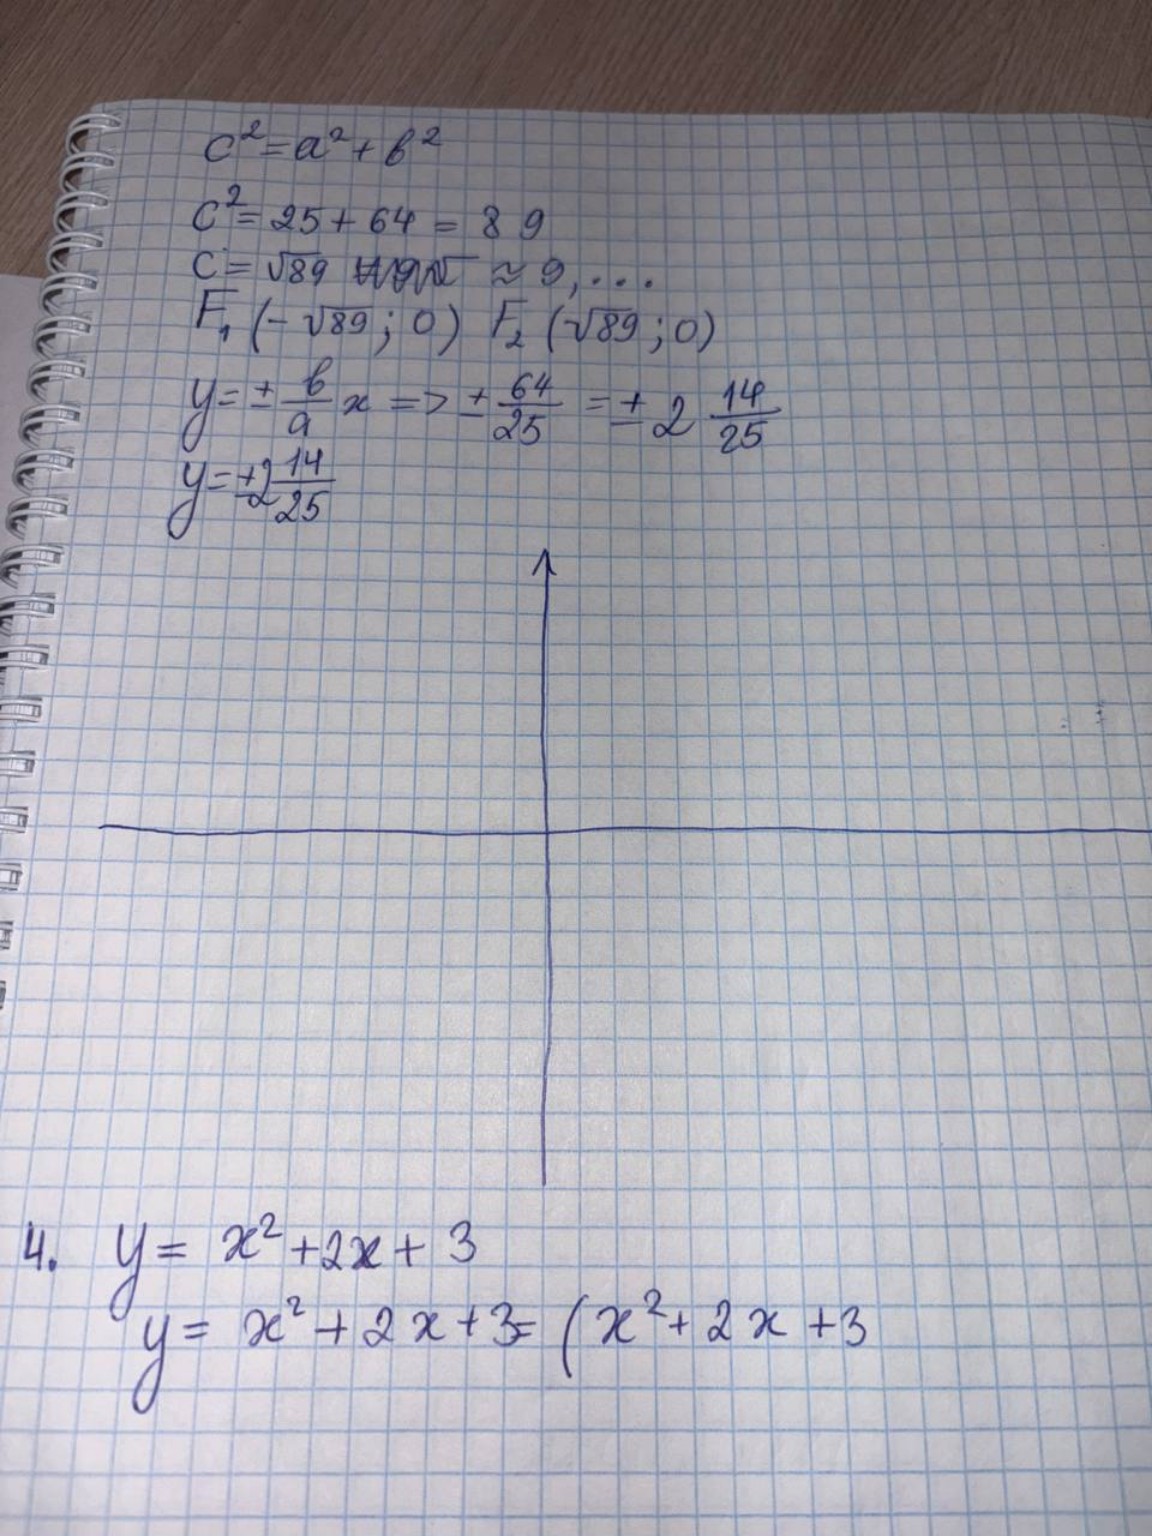 c² = a² + b²
c² = 25 + 64 = 8 9
c = √89 ≈ 9, ...
F₁ (-√89 ; 0) F₂ (√89 ; 0)
y = ± b/a x => ± 64/25 = ± 2 14/25
y = ±2 14/25
4. y = x² + 2x + 3
y = x² + 2x + 3 = (x² + 2x + 3